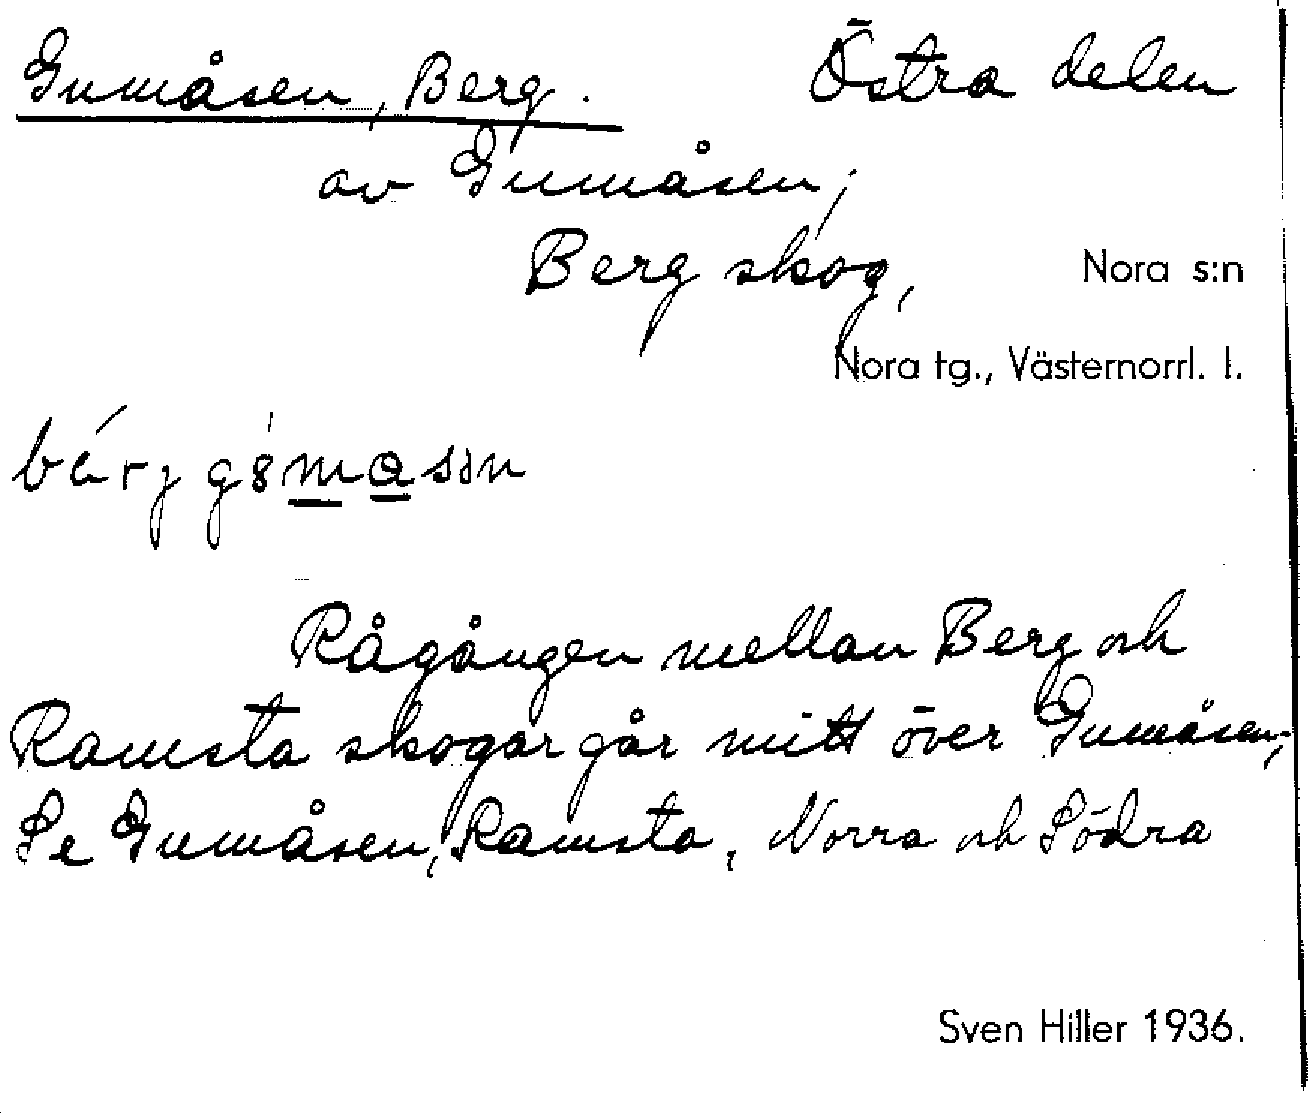 Gumåsen, Berg. Östra delen
av Gumåsen,
Berg skog, Nora s:n
Nora tg., Västernorrl. l.
Rågången mellan Berg och
Ramsta skogar går mitt över Gumåsen,
Se Gumåsen, Ramsta, Norra och Södra
Sven Hiller 1936.